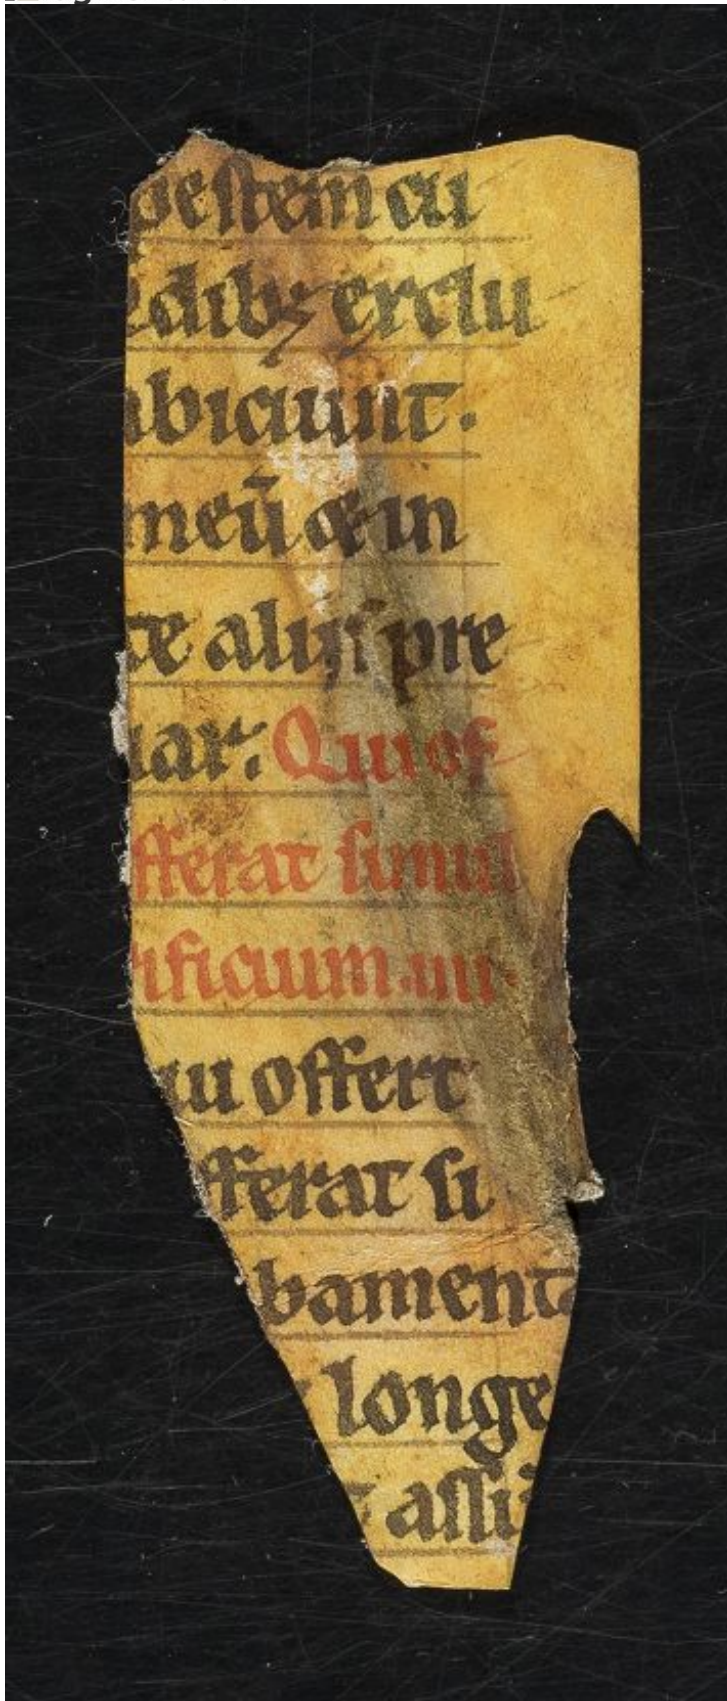 vestem cu
edibꝫ exclu
abiciunt.
meū & in
te aliis pre
uar. Qui of
fferat simul
rificium. iiii.
ui offert
fferat si
bament
longe
assi